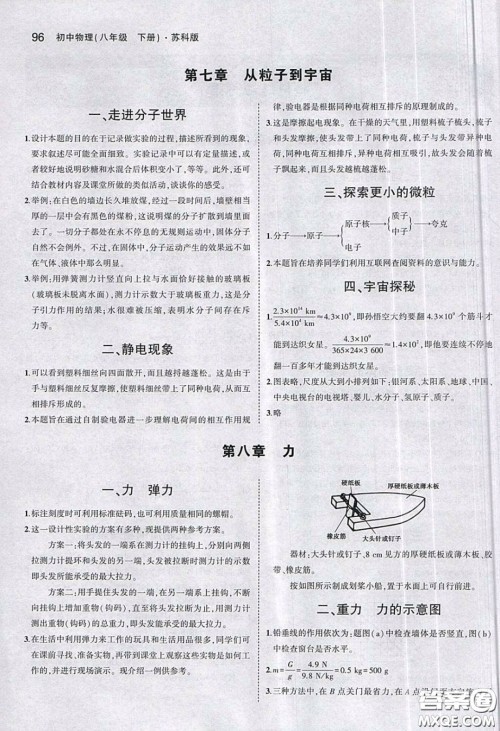 96 初中物理(八年级 下册)·苏科版
第七章 从粒子到宇宙
一、走进分子世界
1. 设计本题的目的在于记录做实验的过程,描述所看到的现象,
要求叙述尽可能全面细致。实验现象中可以有定量描述,或
者较好地说明砂糖和水混合后体积变小了,等等。此外,还可
结合教材内容及课堂所做的类似活动,谈谈你的感受。
2. 举例:在白色的墙边长久堆放煤,经过很长时间后,墙壁相当
厚的一层中会有黑色的煤粒,这说明煤的分子扩散到墙里面
去了。一切分子都处在永不停息的无规则运动中,固体分子
自然不会例外。不过,在固体中,分子运动产生的效果远不如
在气体、液体中那么明显。
3. 举例:用弹簧测力计竖直向上拉与水面恰好接触的玻璃板
(玻璃板未脱离水面),测力计示数大于玻璃板重力,这是分子
引力作用的结果;水很难被压缩,表明水分子间存在相互
斥力。
二、静电现象
1. 可以看到塑料细丝向四面散开,而且越捋越蓬松。这是由于
手与塑料细丝反复摩擦,使塑料细丝带上了同种电荷,从而互
相排斥形成的。
2. 本题旨在通过自制验电器进一步理解电荷间的相互作用规
律,验电器是根据同种电荷相互排斥的原理制成的。
3. 这是摩擦起电现象。在干燥的天气里,用塑料梳子梳头,梳子
和头发摩擦,使头发带上了同种电荷,梳子与头发带异种电
荷,同种电荷相互排斥,异种电荷相互吸引,故头发会随着梳子
飘起来,而且头发越梳越蓬松。
三、探索更小的微粒
1. 分子→原子→原子核→质子→夸克
中子
电子
2. 本题旨在培养同学们利用互联网查阅资料的意识与能力。
四、宇宙探秘
1. 2.3×10¹⁴ km/5.4×10⁴ km≈4.3×10⁹,即孙悟空大约要翻 4.3×10⁹ 个筋斗才
能到达织女星。4.3×10⁹/365×24×3 600≈1.4×10²,即他要连续不停地翻
一百多年才能到达织女星。
2. 图表略,尺度从大到小排列如下:银河系、太阳系、地球、中国、
中央电视台的电视塔、婴儿、水分子、氢原子、质子。
3. 略
第八章 力
一、力 弹力
1. 标注刻度时可利用标准砝码,也可利用质量相同的螺帽。
2. 这一设计性实验的方案有多种,现提供两种参考方案。
方案一:将头发的一端系在测力计的挂钩上,分别向两侧
拉测力计提环和头发的另一端,头发被拉断时测力计的示数
即头发所能承受的最大拉力。
方案二:用手握住头发的一端,在另一端系上挂钩,在挂钩
上增加重物(钩码),直至头发被拉断,用测力计测出此时增加
的重物(钩码)的重力,即头发所能承受的最大拉力。
3. 在生活中利用弹力来工作的玩具和生活用品很多,同学们可
在课前寻找、准备实物,再带到课堂上观察这些实物是如何工
作的,并进行现场演示。现介绍一例供参考。
硬纸板
厚硬纸板或薄木板
橡皮筋
大头针或钉子
器材:大头针或钉子,8 cm 见方的厚硬纸板或薄木板,胶
带,橡皮筋。
按如图所示制成划桨小船,置于水面上可自行前进。
二、重力 力的示意图
1. 铅垂线的作用依次为:图(a)中检查墙体是否竖直,图(b)中
检查窗台是否水平。
2. m=G/g=4.9 N/9.8 N/kg=0.5 kg=500 g
3. 三种方法中,在 B 点关门最省力,在 A 点
答案圈
MXQE.COM